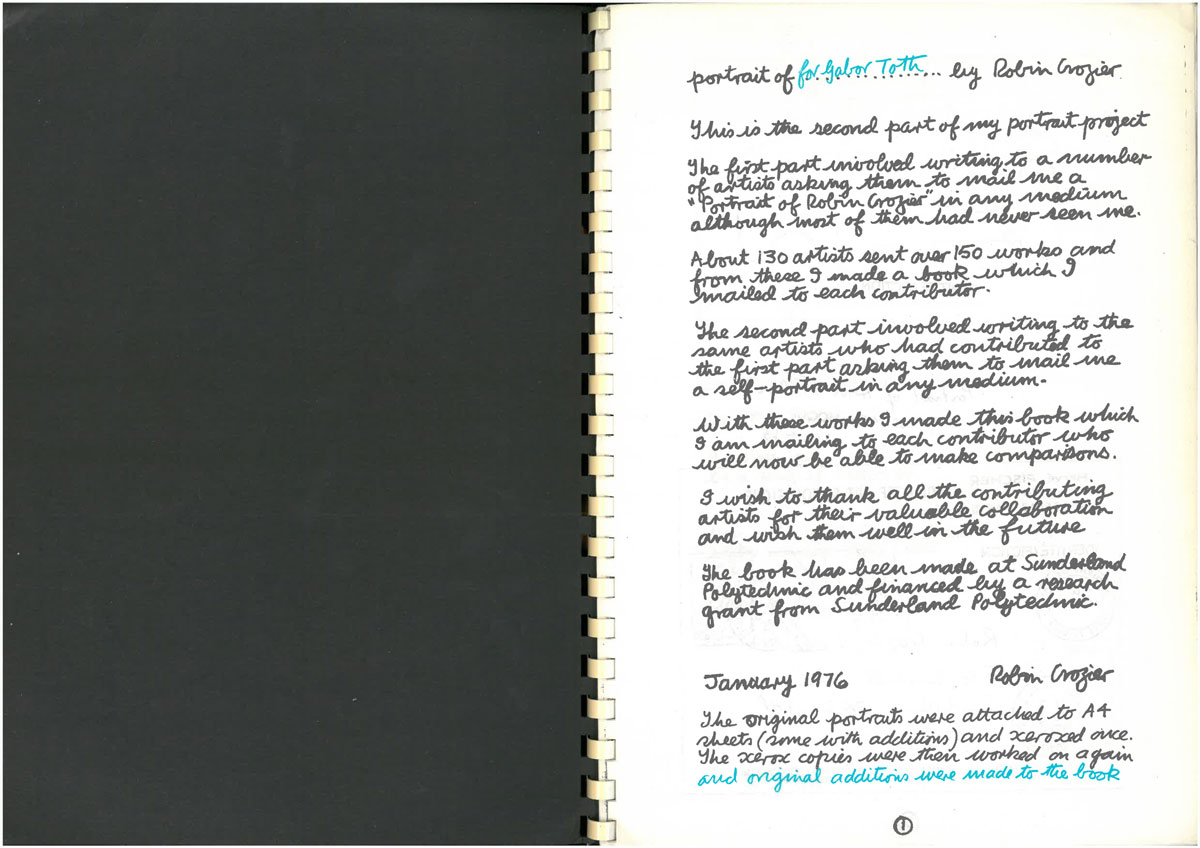 portrait of for Gabor Toth ... by Robin Crozier
This is the second part of my portrait project
The first part involved writing to a number
of artists asking them to mail me a
"Portrait of Robin Crozier" in any medium
although most of them had never seen me.
About 130 artists sent over 150 works and
from these I made a book which I
mailed to each contributor.
The second part involved writing to the
same artists who had contributed to
the first part asking them to mail me
a self-portrait in any medium.
With these works I made this book which
I am mailing to each contributor who
will now be able to make comparisons.
I wish to thank all the contributing
artists for their valuable collaboration
and wish them well in the future
The book has been made at Sunderland
Polytechnic and financed by a research
grant from Sunderland Polytechnic.
January 1976 Robin Crozier
The original portraits were attached to A4
sheets (some with additions) and xeroxed once.
The xerox copies were then worked on again
and original additions were made to the book
1